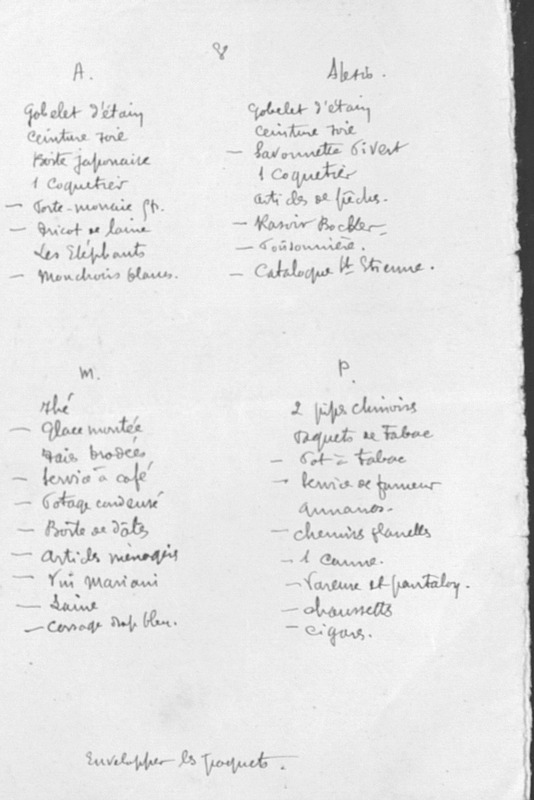 8
A.
Gobelet d'étain
Ceinture soie
Boîte japonaise
1 Coquetier
— Porte-monnaie
— Tricot de laine
Les Eléphants
— Mouchoirs blancs.
Alexis.
Gobelet d'étain
Ceinture soie
— Savonnette Pivert
1 Coquetier
Articles de pêche.
— Rasoir
— Poissonnière.
— Catalogue St Etienne.
M.
Thé
— Glace montée
Soies brodées
— Service à café
— Potage condensé
— Boîte de dattes
— Articles ménagers
— Vin Mariani
— Laine
— Corsage drap bleu.
P.
2 pipes chinoises
Paquets de Tabac
— Pot à Tabac
— Service de fumeur
Ananas.
— Chemises flanelles
— 1 Canne.
— Vareuse et pantalon.
— Chaussettes
— Cigares.
Envelopper les paquets.